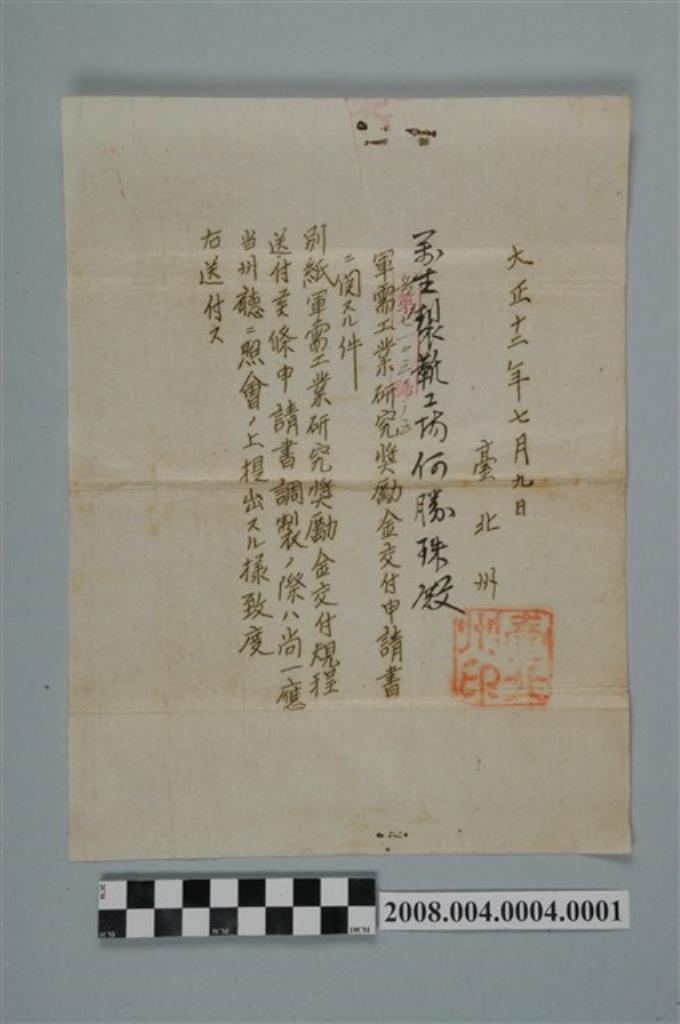 大正十二年七月九日
臺北州
臺北
州印
萬生製靴工場何勝珠殿
軍需工業研究奨勵金交付申請書
ニ関スル件
別紙軍需工業研究奨勵金交付規程
送付候條申請書調製ノ際ハ尚一應
当州聽ニ照會ノ上提出スル様致度
右送付ス
2008.004.0004.0001
5CM
10CM